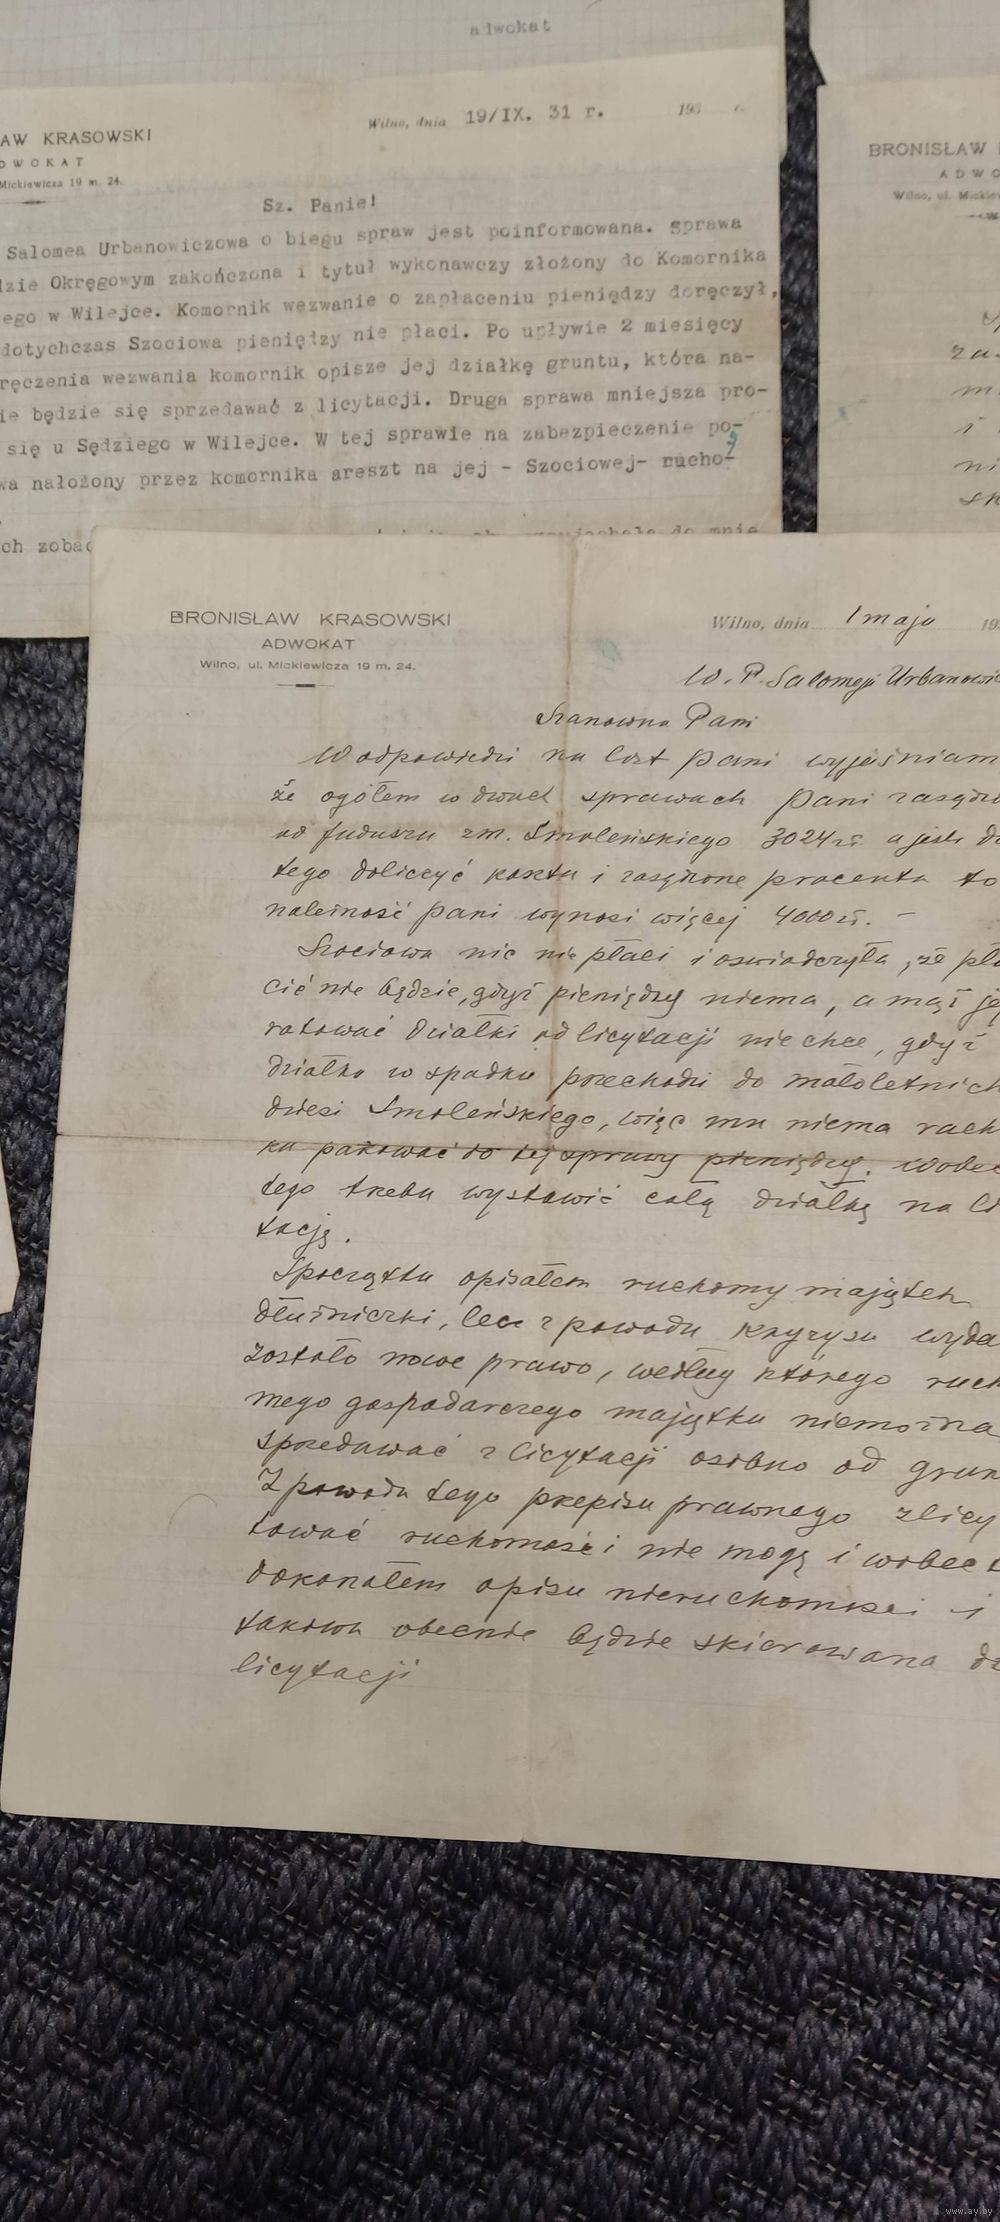 adwokat
AW KRASOWSKI
DWOKAT
Mickiewicza 19 m. 24.
Wilno, dnia 19/IX. 31 r. 193 r.
Sz. Panie!
Salomea Urbanowiczowa o biegu spraw jest poinformowana. sprawa
dzie Okręgowym zakończona i tytuł wykonawczy złożony do Komornika
ego w Wilejce. Komornik wezwanie o zapłaceniu pieniędzy doręczył,
dotychczas Szociowa pieniędzy nie płaci. Po upływie 2 miesięcy
ręczenia wezwania komornik opisze jej działkę gruntu, która na-
ie będzie się sprzedawać z licytacji. Druga sprawa mniejsza pro-
się u Sędziego w Wilejce. W tej sprawie na zabezpieczenie po-
wa nałożony przez komornika areszt na jej - Szociowej- rucho-
ch zobac
do mnie
BRONISŁAW
ADWO
Wilno, ul. Mickiew
za
m
i
ni
BRONISŁAW KRASOWSKI
ADWOKAT
Wilno, ul. Mickiewicza 19 m. 24.
Wilno, dnia 1 maja 19
W. P. Salomeji Urbanowi
Szanowna Pani
W odpowiedzi na list Pani wyjaśniam
że ogółem w dwuch sprawach Pani zasądzo
od fuduszu zm. Smoleńskiego 3024 zł. a jeśli do
tego doliczyć koszta i zasądzone procenta to
należność Pani wynosi więcej 4000 zł. -
Szociowa nic nie płaci i oswiadczyła, że pła
cić nie będzie, gdyż pieniędzy niema, a mąż je
ratować działki od licytacji nie chce, gdyż
działka w spadku przechodzi do małoletnich
dzieci Smoleńskiego, więc mu niema rach
ku pakować do tej sprawy pieniędzy. Wobec
tego trzeba wystawić całą działkę na li
tację.
Spoczątku opisałem ruchomy majątek
dłużniczki, lecz z powodu kryzysu wyda
zostało nowe prawo, według którego ruch
mego gospodarczego majątku niemożna
sprzedawać z licytacji osobno od grun
Z powodu tego przepisu prawnego zlicy
tować ruchomości nie mogę i wobec t
dokonałem opisu nieruchomości i
takowa obecnie będzie skierowana do
licytacji
www.ay.by